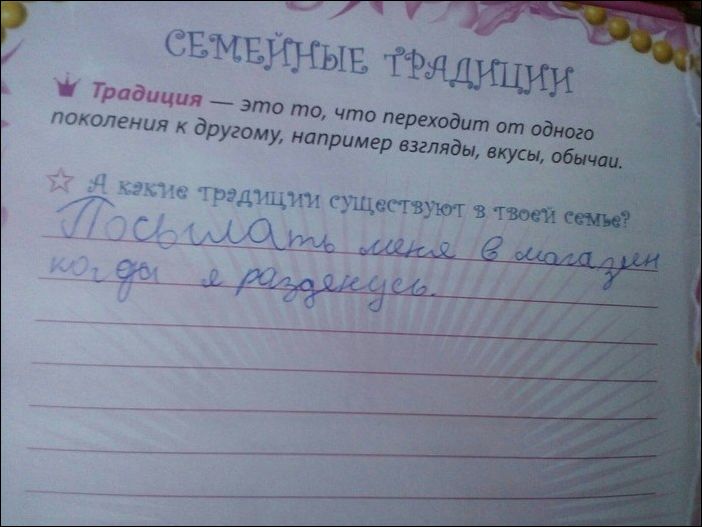 СЕМЕЙНЫЕ ТРАДИЦИИ
Традиция — это то, что переходит от одного
поколения к другому, например взгляды, вкусы, обычаи.
А какие традиции существуют в твоей семье?
Посылать меня в магазин
когда я раздянусь.